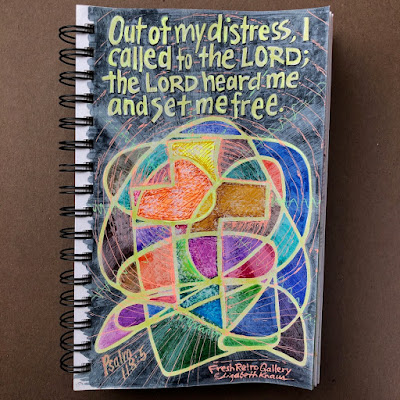 Out of my distress, I
called to the LORD;
the LORD heard me
and set me free.
Psalm
118:5
Fresh Retro Gallery
Elizabeth Knaus